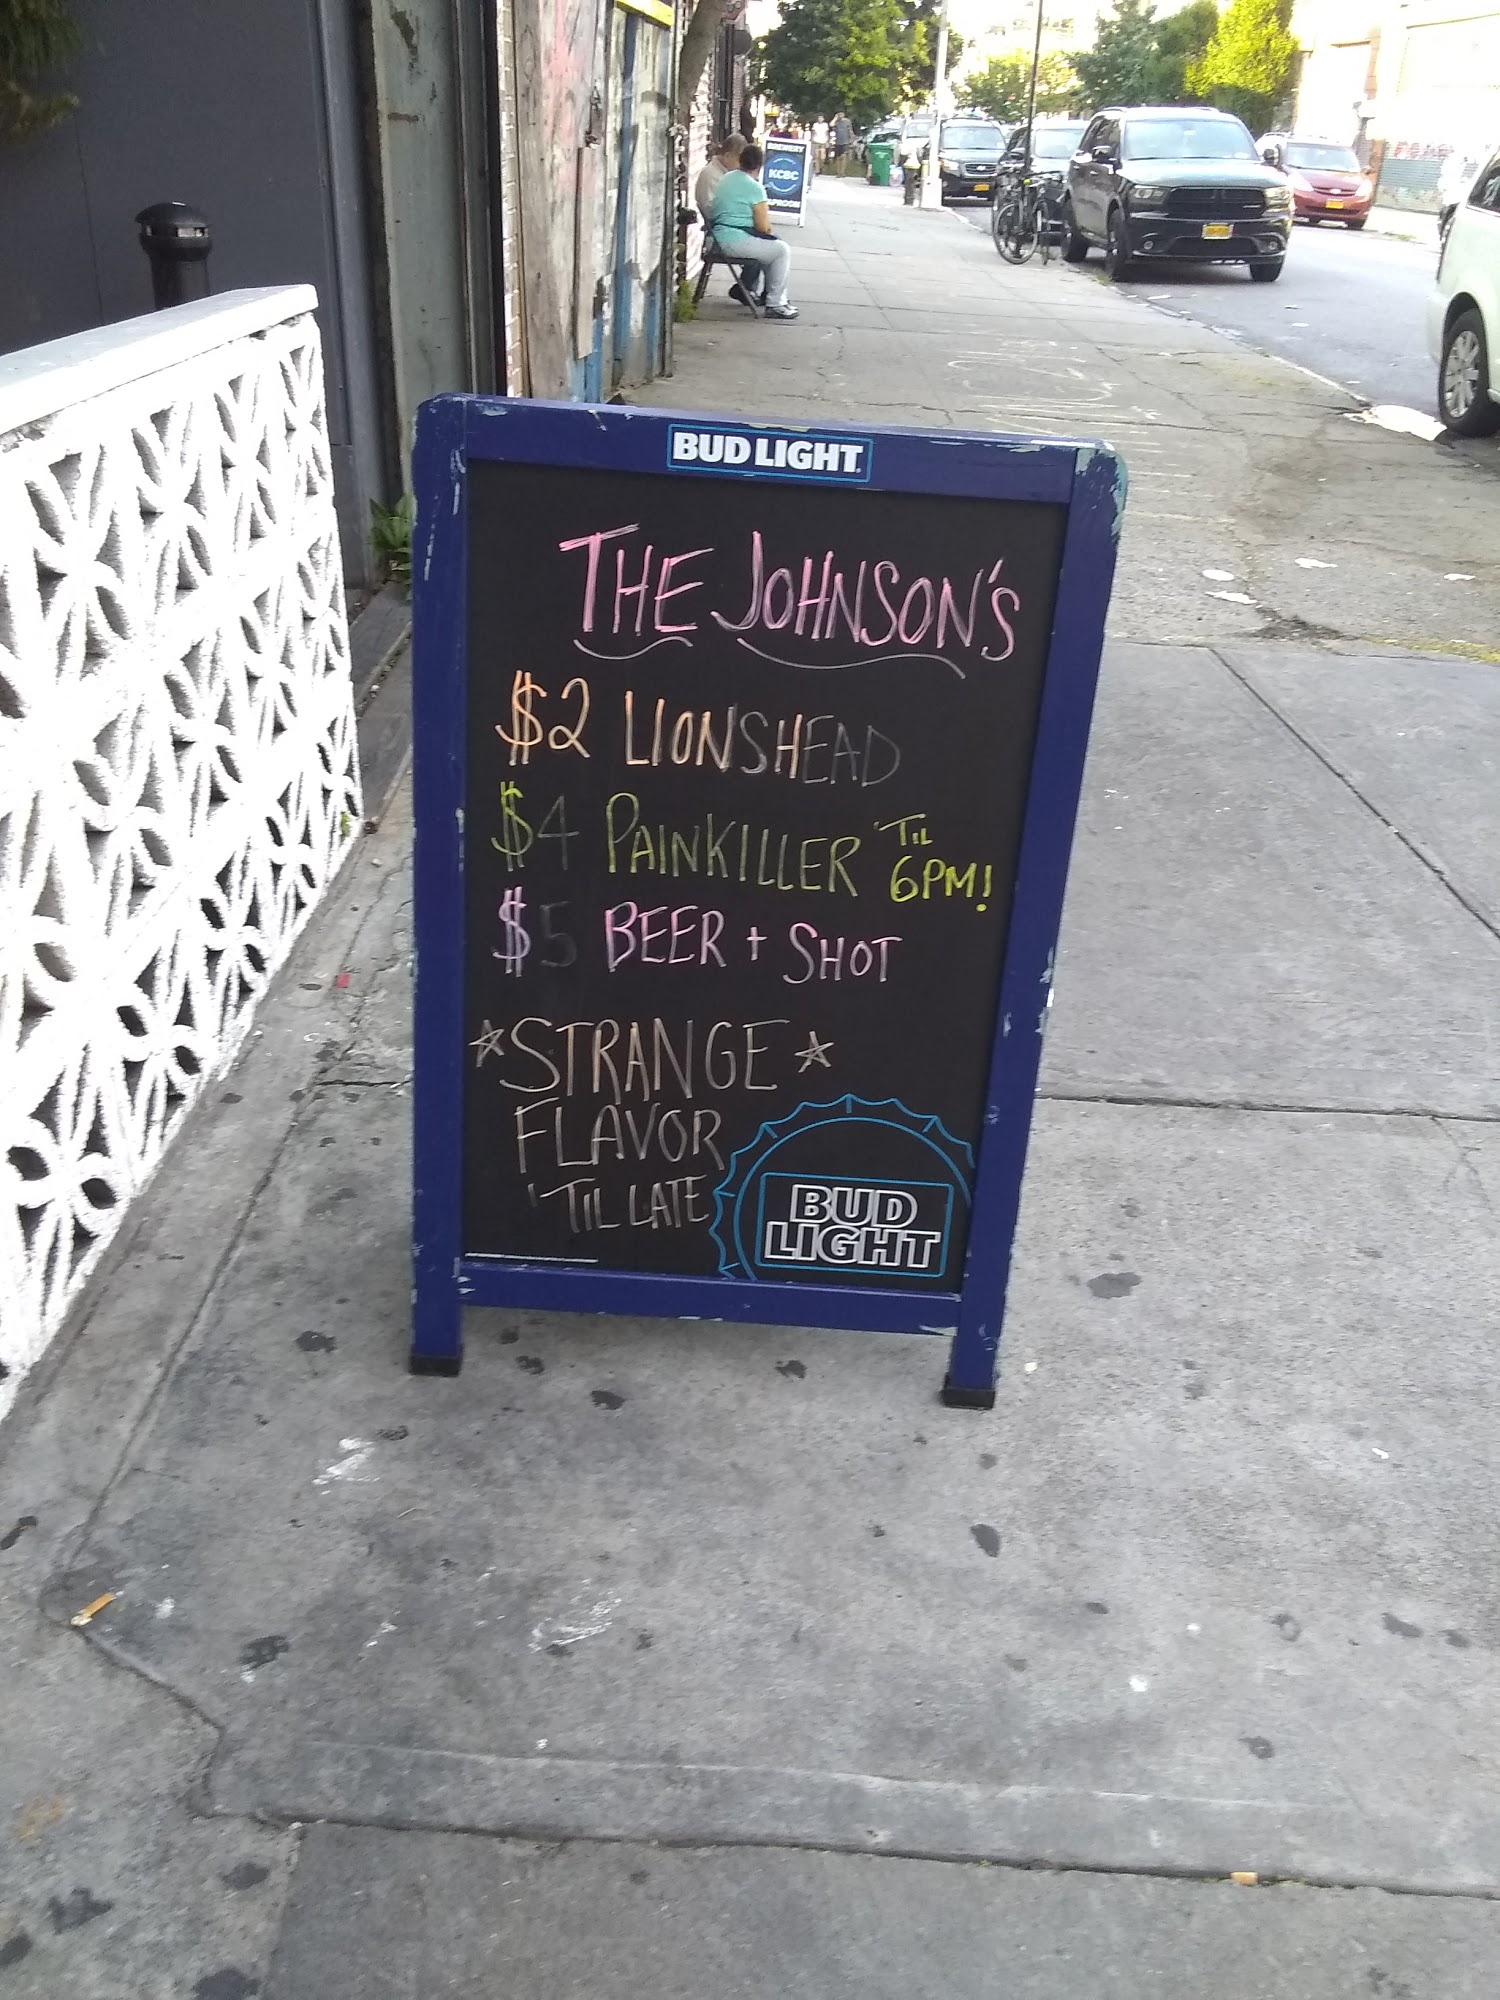 BREWERY
KCBC
TAPROOM
BUD LIGHT
THE JOHNSON'S
$2 LIONSHEAD
$4 PAINKILLER 'TIL
6PM!
$5 BEER + SHOT
☆STRANGE☆
FLAVOR
'TIL LATE
BUD
LIGHT